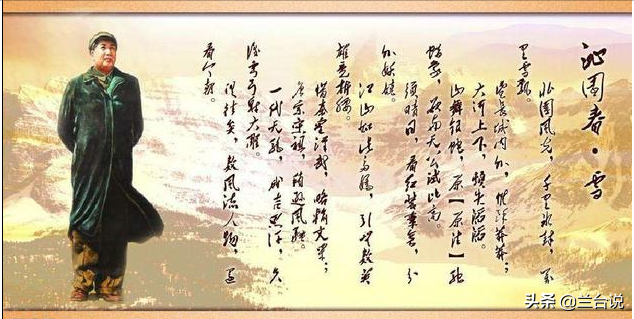 沁园春·雪
北国风光，千里冰封，万
里雪飘。
望长城内外，惟余莽莽；
大河上下，顿失滔滔。
山舞银蛇，原【原注】驰
蜡象，欲与天公试比高。
须晴日，看红装素裹，分
外妖娆。
江山如此多娇，引无数英
雄竞折腰。
惜秦皇汉武，略输文采；
唐宗宋祖，稍逊风骚。
一代天骄，成吉思汗，只
识弯弓射大雕。
俱往矣，数风流人物，还
看今朝。
头条 @兰台说